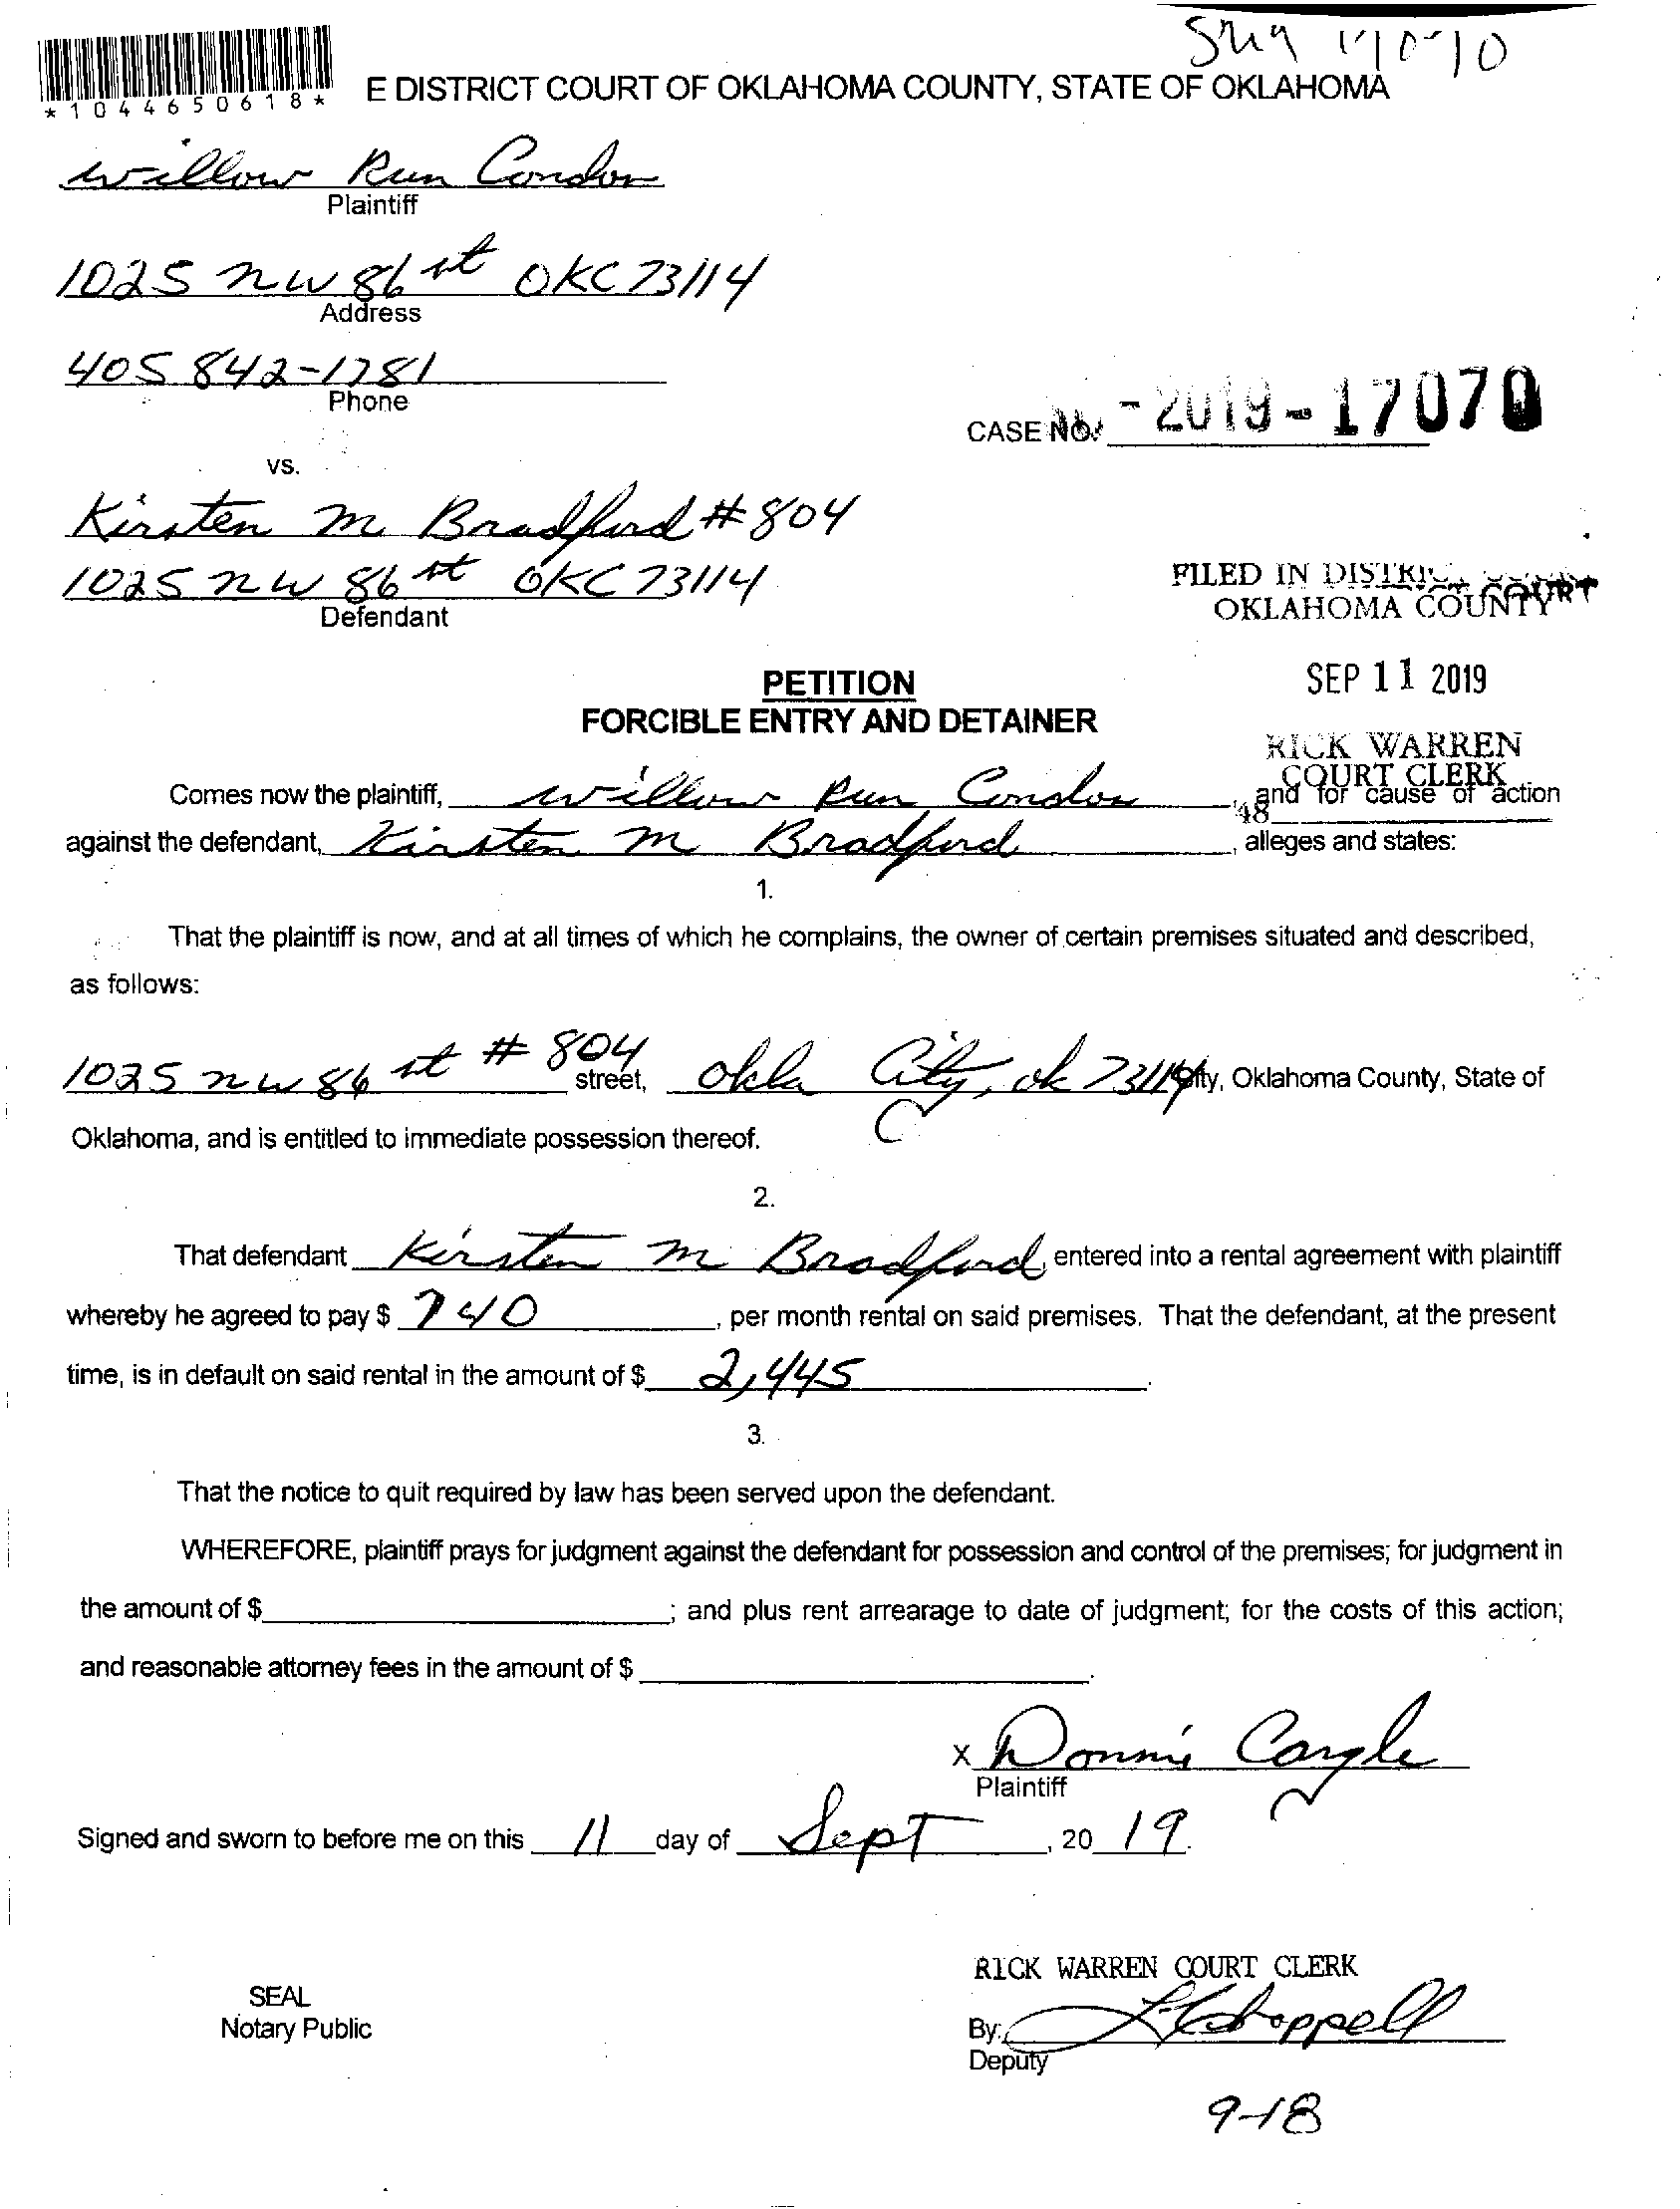 *1044650618*
E DISTRICT COURT OF OKLAHOMA COUNTY, STATE OF OKLAHOMA
Willow Run Condos
Plaintiff
1025 NW 86 st OKC 73114
Address
405 842-1781
Phone
CASE NO. -2019-17070
vs.
Kirsten M Bradford #804
1025 NW 86 st OKC 73114
Defendant
FILED IN DISTRICT COURT
OKLAHOMA COUNTY
PETITION
SEP 11 2019
FORCIBLE ENTRY AND DETAINER
RICK WARREN
COURT CLERK
48
Comes now the plaintiff, Willow Run Condos, and for cause of action
against the defendant, Kirsten M Bradford, alleges and states:
1.
That the plaintiff is now, and at all times of which he complains, the owner of certain premises situated and described,
as follows:
1025 NW 86 st # 804 street, Okla City, ok 73114 City, Oklahoma County, State of
Oklahoma, and is entitled to immediate possession thereof.
2.
That defendant Kirsten M Bradford, entered into a rental agreement with plaintiff
whereby he agreed to pay $ 740, per month rental on said premises. That the defendant, at the present
time, is in default on said rental in the amount of $ 2,445.
3.
That the notice to quit required by law has been served upon the defendant.
WHEREFORE, plaintiff prays for judgment against the defendant for possession and control of the premises; for judgment in
the amount of $ ; and plus rent arrearage to date of judgment; for the costs of this action;
and reasonable attorney fees in the amount of $ .
x Donnie Cargle
Plaintiff
Signed and sworn to before me on this 11 day of Sept, 20 19.
RICK WARREN COURT CLERK
SEAL
Notary Public
By: Chappell
Deputy
9-18